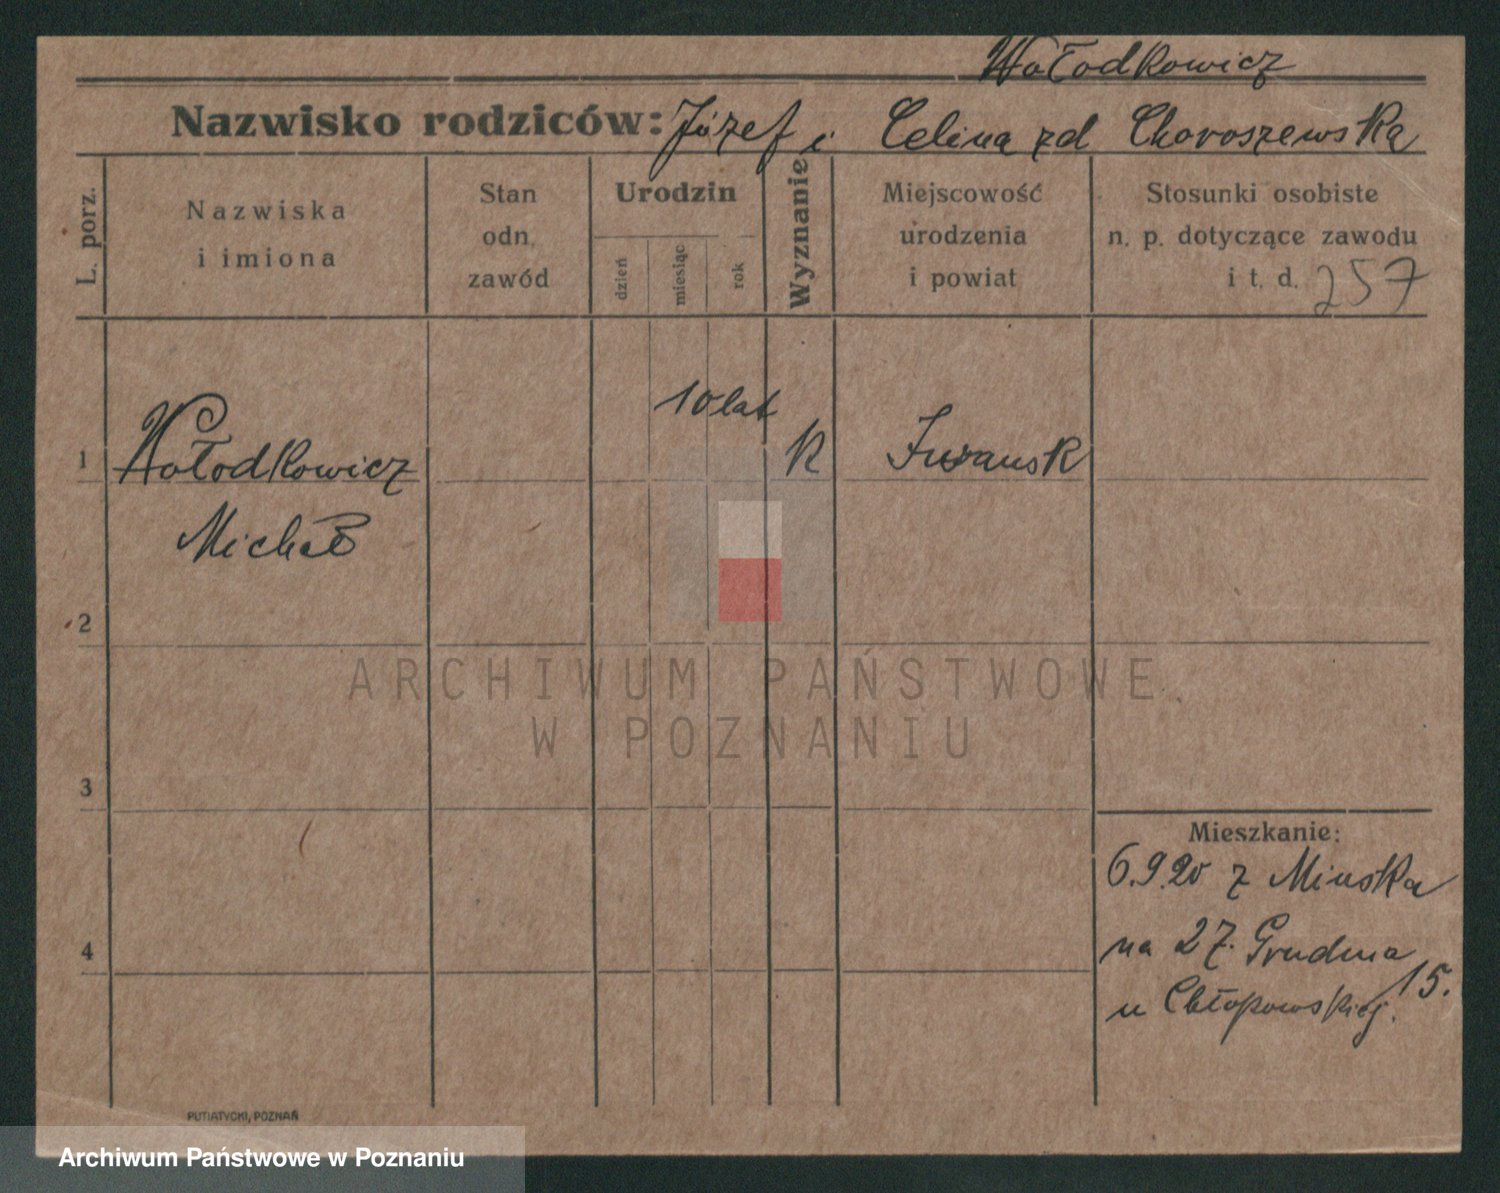 Wołodkowicz
Nazwisko rodziców: Józef i Celina zd Choroszewska
L. porz.
Nazwiska
i imiona
Stan
odn.
zawód
Urodzin
dzień
miesiąc
rok
Wyznanie
Miejscowość
urodzenia
i powiat
Stosunki osobiste
n. p. dotyczące zawodu
i t. d. 257
10 lat
1 Wołodkowicz K
Michał
2
3
4
Mieszkanie:
6.9.20 z Mińska
na 27. Grudnia
15.
u Chłapowskiej.
PUTIATYCKI, POZNAŃ
ARCHIWUM PAŃSTWOWE
W POZNANIU
Archiwum Państwowe w Poznaniu